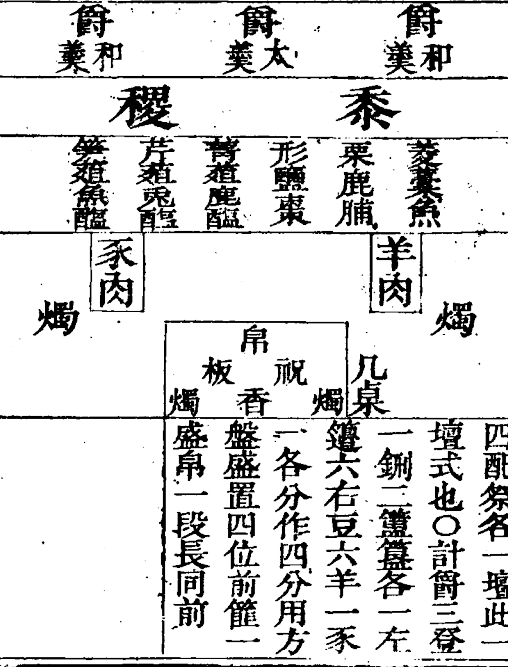 爵
和羹
爵
太羹
爵
和羹
黍
稷
菱藁魚
栗鹿脯
形鹽棗
菁葅鹿醢
芹葅兎醢
筍葅魚醢
燭
羊肉
豕肉
燭
几桌
帛
祝板
燭香燭
四配祭各一壇此一
壇式也○計爵三登
一鉶二簠簋各一左
籩六右豆六羊一豕
一各分作四分用方
盤盛置四位前篚一
盛帛一段長同前